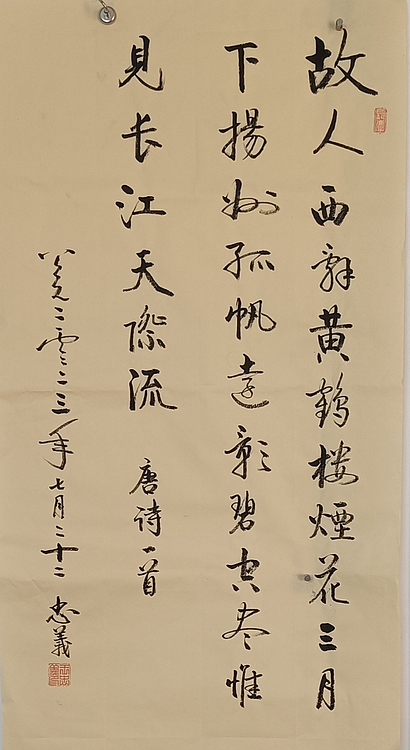 故人西辭黄鶴楼煙花三月
下揚州孤帆遠影碧空尽惟
見长江天際流 唐诗一首
公元二零二三年七月二十二 忠義